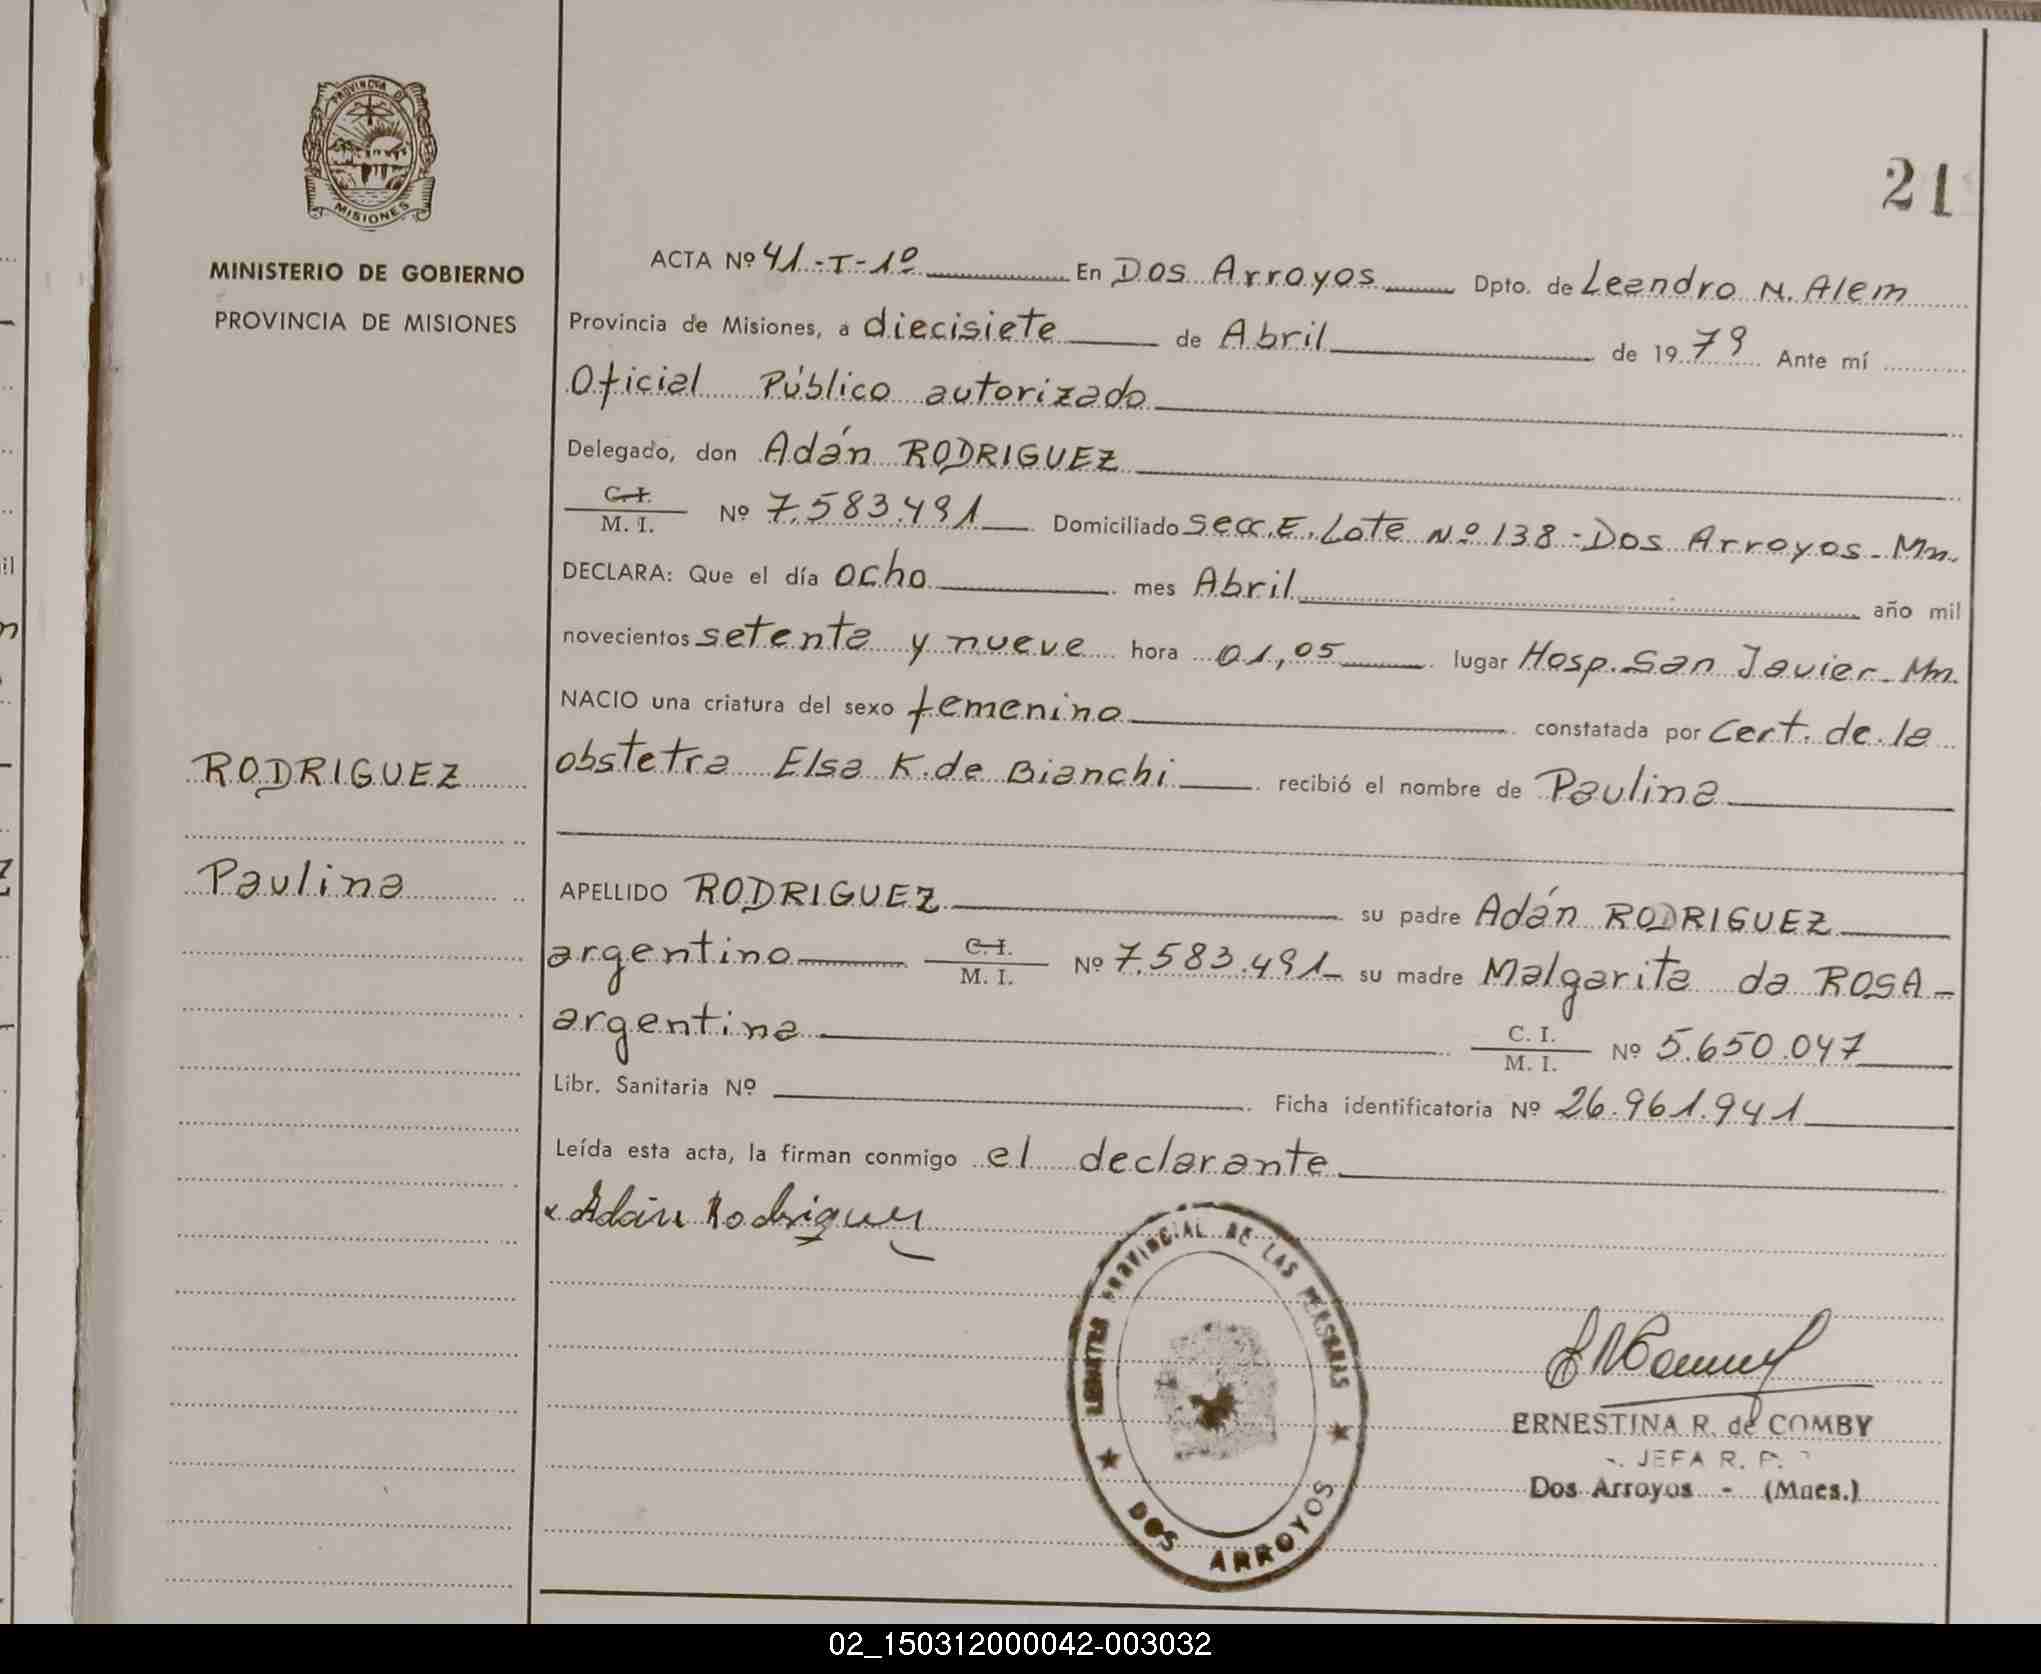 PROVINCIA DE
MISIONES
MINISTERIO DE GOBIERNO
PROVINCIA DE MISIONES
21
ACTA Nº 41-T-1º En Dos Arroyos Dpto. de Leandro N. Alem
Provincia de Misiones, a diecisiete de Abril de 1979 Ante mí
Oficial Público autorizado
Delegado, don Adán RODRIGUEZ
C. I. / M. I. Nº 7.583.491 Domiciliado Secc. E. Lote Nº 138-Dos Arroyos-Mn.
DECLARA: Que el día ocho mes Abril año mil
novecientos setenta y nueve hora 01,05 lugar Hosp. San Javier-Mn.
NACIO una criatura del sexo femenino constatada por Cert. de la
obstetra Elsa K. de Bianchi recibió el nombre de Paulina
RODRIGUEZ
Paulina
APELLIDO RODRIGUEZ su padre Adán RODRIGUEZ
argentino C. I. / M. I. Nº 7.583.491 su madre Malgarita da ROSA
argentina C. I. / M. I. Nº 5.650.047
Libr. Sanitaria Nº Ficha identificatoria Nº 26.961.941
Leída esta acta, la firman conmigo el declarante
x Adán Rodriguez
PROVINCIAL DE LAS PERSONAS
DOS ARROYOS
ERNESTINA R. de COMBY
JEFA R. P.
Dos Arroyos - (Mnes.)
02_150312000042-003032